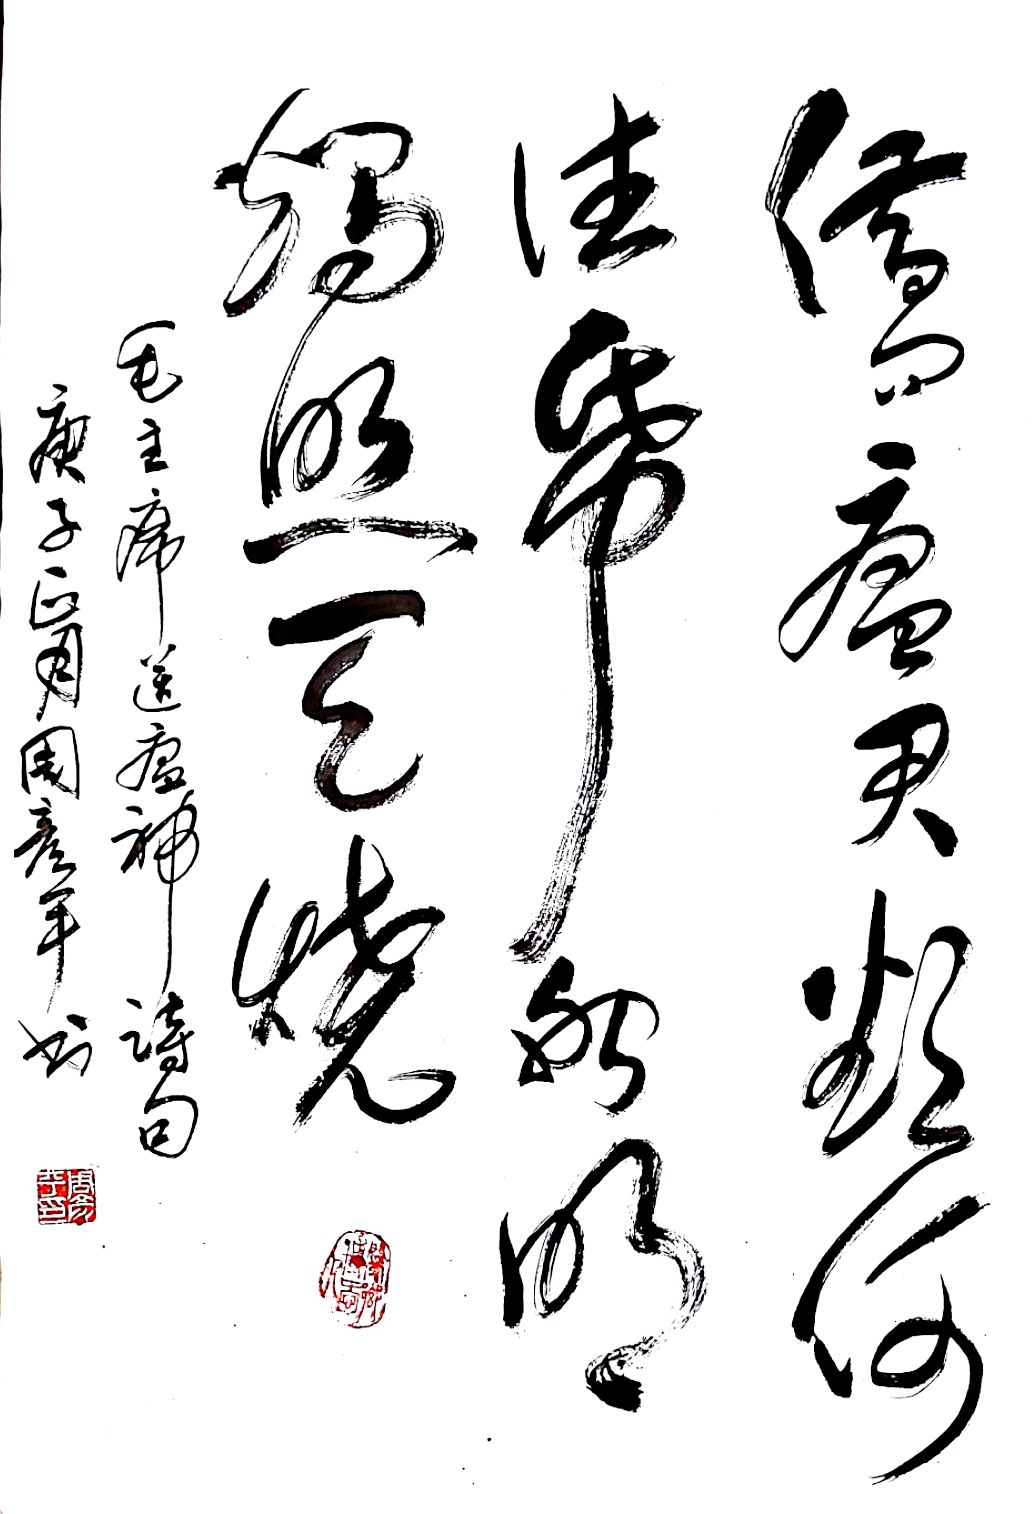 借问瘟君欲何
往帋船明
烛照天烧
毛主席送瘟神詩句
庚子正月周彦书